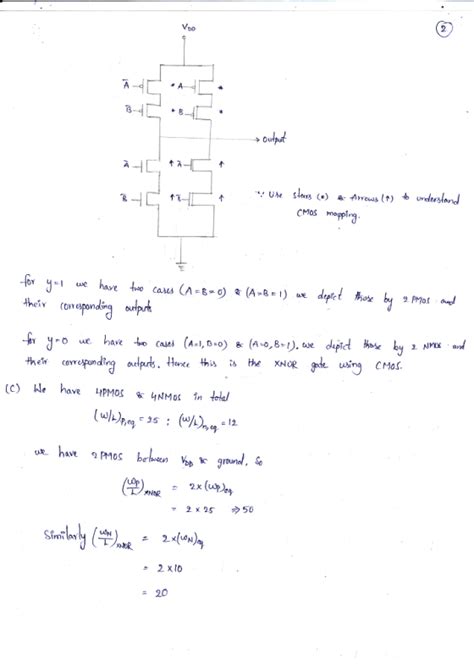 VDD
2
Ā
A
B
B
output
Ā
Ā
B
B
∵ Use stars (*) & Arrows (↑) to understand
CMOS mapping.
for y=1 we have two cases (A=B=0) & (A=B=1) we depict those by 2 PMOS and
their corresponding outputs
for y=0 we have two cases (A=1, B=0) & (A=0, B=1). we depict those by 2 NMOS and
their corresponding outputs. Hence this is the XNOR gate using CMOS.
(C) We have 4PMOS & 4NMOS in total
(W/L)p,eq = 25 ; (W/L)n,eq = 12
we have 2PMOS between VDD & ground. So
(Wp/L)XNOR = 2×(Wp)eq
= 2 × 25 ⇒ 50
Similarly (WN/L)XNOR = 2×(WN)eq
= 2 × 10
= 20